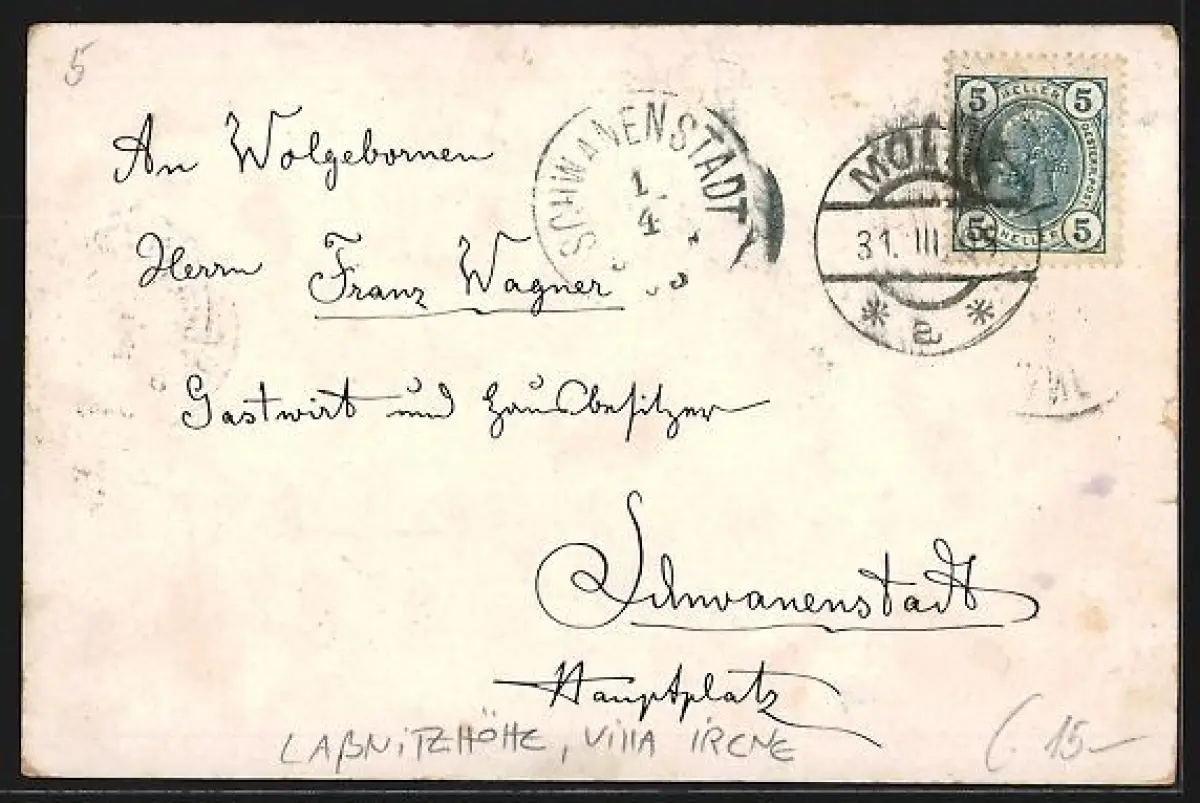 5
An Wolgebornen
Herrn Franz Wagner
Gastwirt und Hausbesitzer
Schwanenstadt
Hauptplatz
LAßNITZHÖHE, VILLA IRENE
15.-
SCHWANENSTADT
1.
4
31. III.
a
5 HELLER 5
5 HELLER 5